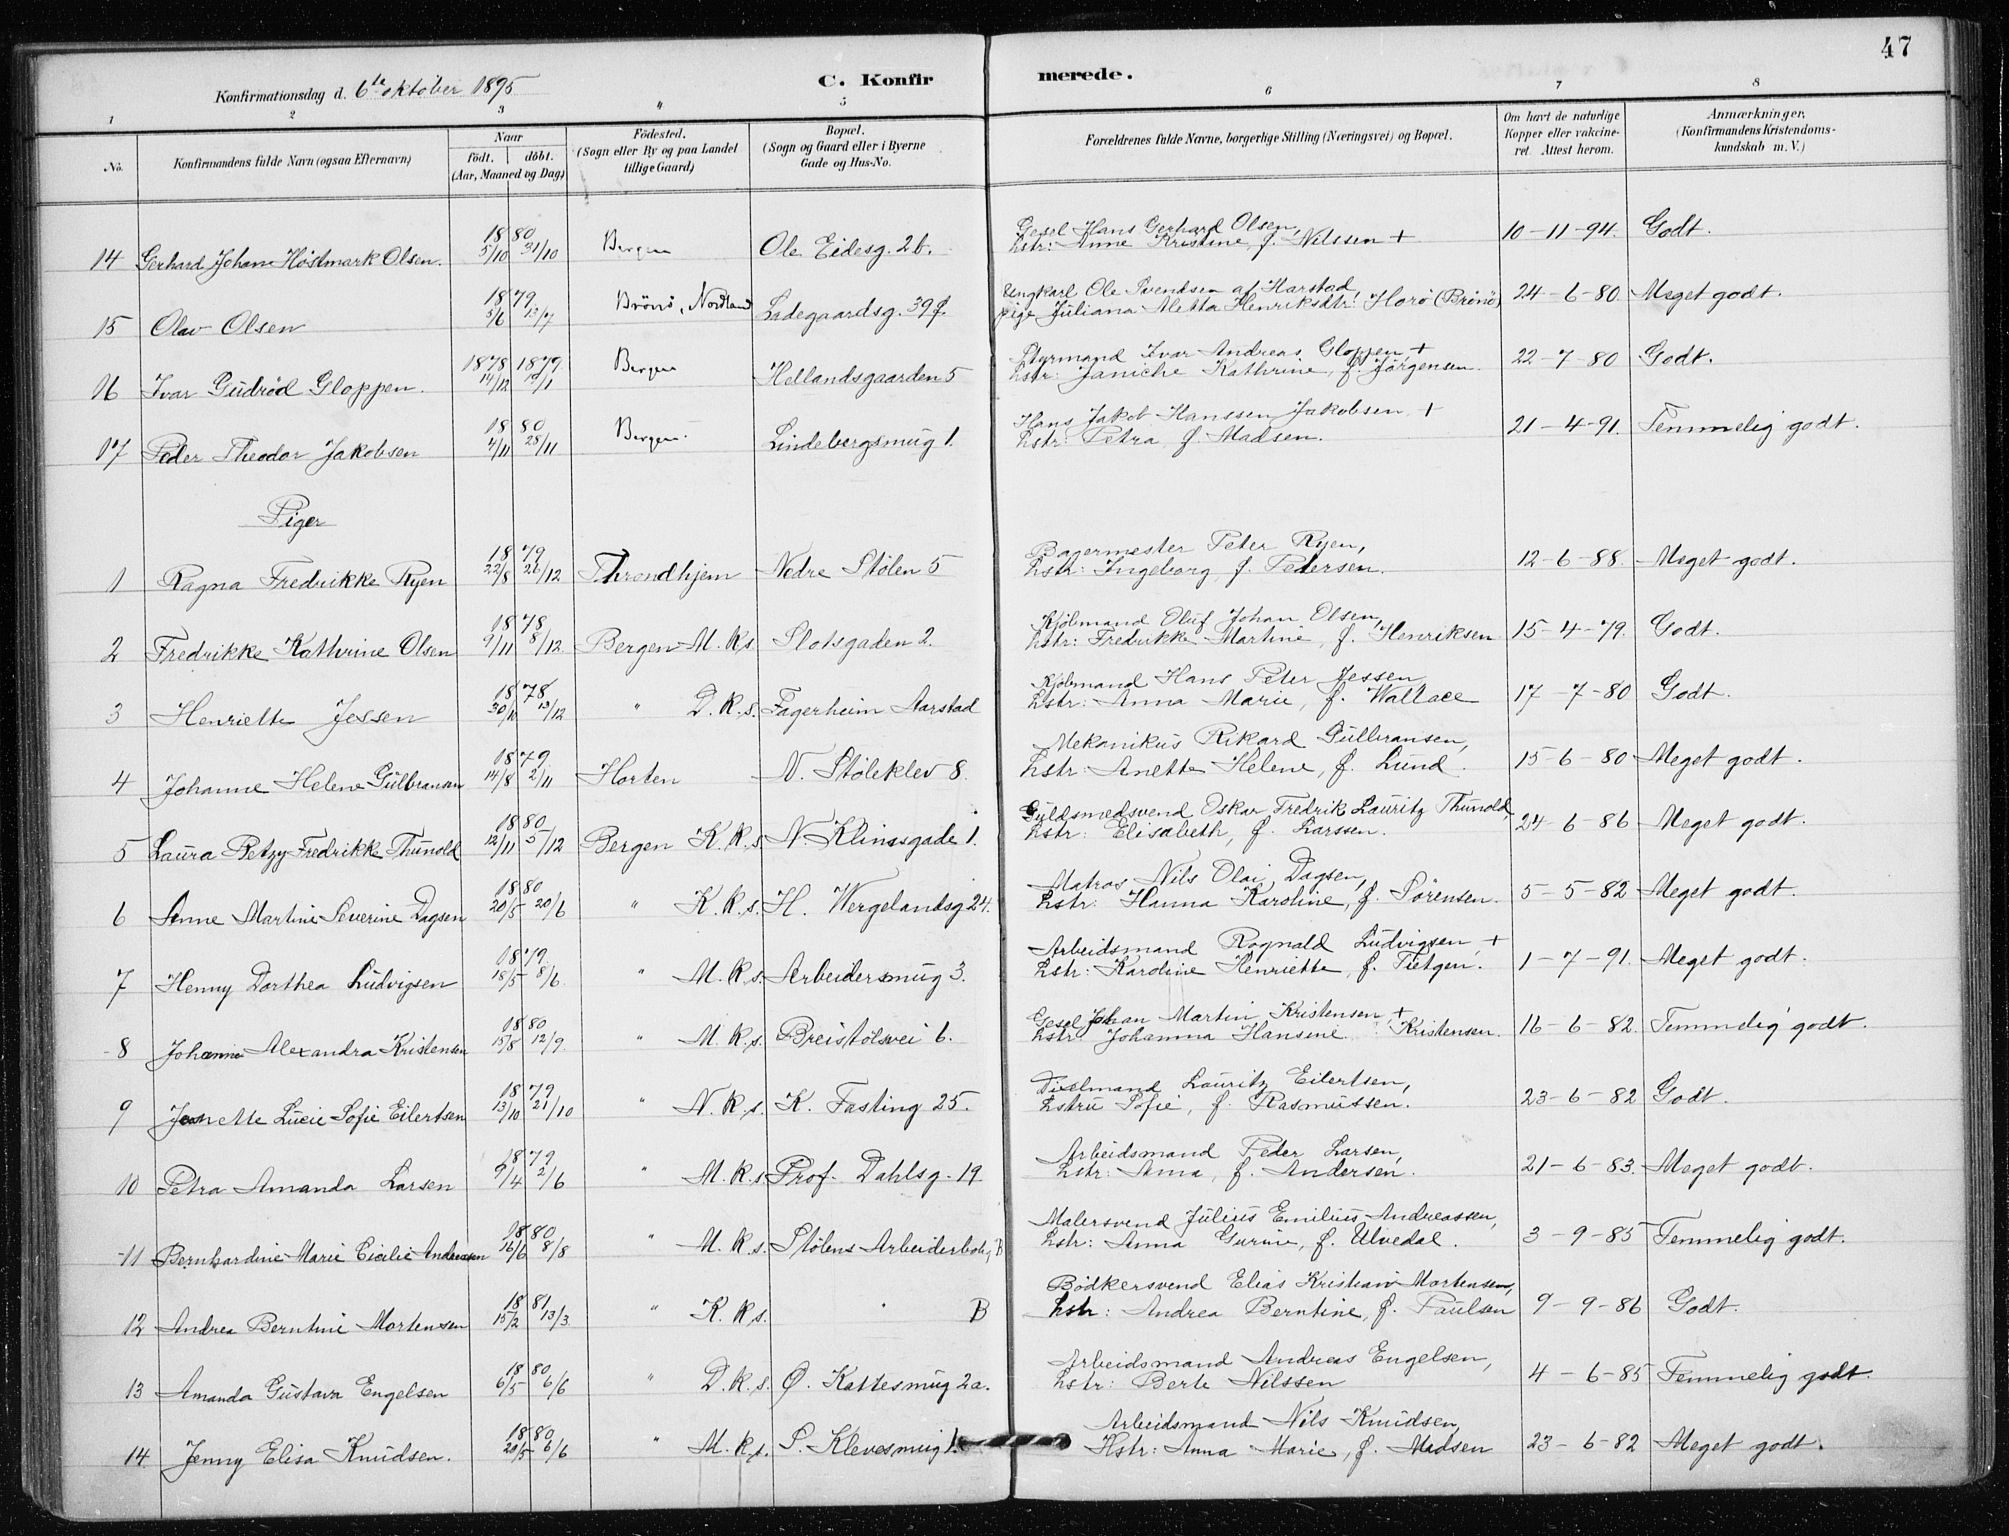 47
Konfirmationsdag d. 6te oktober 1895
C. Konfirmerede.
1 2 3 " 5 6 7 8
No.
Konfirmandens fulde Navn (ogsaa Efternavn)
Naar
födt. döbt.
(Aar, Maaned og Dag)
Födested.
(Sogn eller By og paa Landet
tillige Gaard)
Bopæl.
(Sogn og Gaard eller i Byerne
Gade og Hus-No.
Forældrenes fulde Navne, borgerlige Stilling (Næringsvei) og Bopæl.
Om havt de naturlige
Kopper eller vakcineret.
Attest herom.
Anmærkninger,
(Konfirmandens Kristendomskundskab
m. V.)
14 Gerhard Johan Höstmark Olsen. 1880 5/10 31/10 Bergen Ole Eidesg. 2b. Gesel Hans Gerhard Olsen, Hstr: Anne Kristine, f. Nilssen + 10-11-94. Godt.
15 Olav Olsen 1879 5/6 13/7 Brönö, Nordland Ladegaardsg. 39f. Ungkarl Ole Svendsen af Harstad, pige Juliana Aletta Henriksdtr. Horö (Brönö) 24-6-80. Meget godt.
16 Ivar Gudröd Gloppen. 1878 1879 14/12 19/1 Bergen Hellandsgaarden 5 Styrmand Ivar Andreas Gloppen, + Hstr: Janiche Kathrine, f. Jörgensen. 22-7-80 Godt.
17 Peder Theodor Jakobsen 1880 4/11 28/11 Bergen. Lindebergsmug 1. Hans Jakob Hanssen Jakobsen, + Hstr: Petra f. Madsen. 21-4-91. Temmelig godt.
Piger
1 Ragna Fredrikke Ryen 1879 22/8 26/12 Throndhjem Nedre Stölen 5 Bagermester Peter Ryen, Hstr: Ingeborg, f. Petersen. 12-6-88. Meget godt.
2 Fredrikke Kathrine Olsen 1878 9/11 8/12 Bergen M.K.s. Slotsgaden 2. Kjölmand Oluf Johan Olsen, Hstr: Fredrikke Martine, f. Henriksen 15-4-79. Godt.
3 Henriette Jessen 1878 30/11 13/12 " D.K.s. Fagerheim Aarstad Kjölmand Hans Peter Jessen Hstr: Anna Marie, f. Wallace 17-7-80 Godt.
4 Johanne Helene Gulbransen 1879. 14/8 2/11 Horten N. Stöleklev 8. Mekanikus Rikard Gulbransen, Hstr: Anette Helene, f. Lund. 15-6-80 Meget godt.
5 Laura Betzy Fredrikke Thunold 1880 12/11 5/12 Bergen K.K.s. N. Klinesgade 1. Guldsmedsvend Oskar Fredrik Lauritz Thunold Hstr: Elisabeth, f. Larssen. 24-6-86 Meget godt.
6 Anne Martine Severine Dagsen 1880 20/5 20/6 " K.K.s. H. Wergelandsg 24. Matros Nils Olai Dagsen, Hstr: Hanna Karoline, f. Sörensen. 5-5-82 Meget godt.
7 Henny Dorthea Ludvigsen 1879. 18/5 8/6. " M.K.s. Arbeidersmug 3. Arbeidsmand Rognald Ludvigsen, + Hstr: Karoline Henriette, f. Tietgen. 1-7-91. Meget godt.
8 Johanne Alexandra Kristensen 1880 15/8 12/9. " M.K.s. Breistölsvei 6. Gesel Johan Martin Kristensen + Hstr Johanna Hansine Kristensen. 16-6-82. Temmelig godt.
9 Jeanette Lucie Sofie Eilertsen 1879 13/10 21/10 " N.K.s. K. Fasting 25. Lauritz Eilertsen, Hstru Sofie, f. Rasmussen. 23-6-82 Godt.
10 Petra Amanda Larsen 1879 9/4 2/6 " M.K.s. Prof. Dahlsg. 19 Arbeidsmand Peder Larsen, Hstr: Anna, f. Andersen. 21-6-83. Meget godt.
11 Bernhardine Marie Cicilie Andreassen 1880 16/6 8/8 " M.K.s. Stölens Arbeiderbol., B Malersvend Julius Emilius Andreassen, Hstr: Anna Gurine, f. Ulvedal. 3-9-85 Temmelig godt.
12 Andrea Berntine Mortensen 1881 15/2 13/3. " K.K.s. " B Bödkersvend Elias Kristian Mortensen, Hstr: Andrea Berntine, f. Paulsen 9-9-86 Godt.
13 Amanda Gustava Engelsen 1880 6/5 6/6 " D.K.s. Ø. Kattesmug 2a. Arbeidsmand Andreas Engelsen, Hstr: Berte Nilssen 4-6-85 Temmelig godt.
14. Jenny Elisa Knudsen. 1880 20/5 6/6 " M.K.s. S. Klevesmug 1. Arbeidsmand Nils Knudsen, Hstr: Anna Marie, f. Madsen 23-6-82 Meget godt.